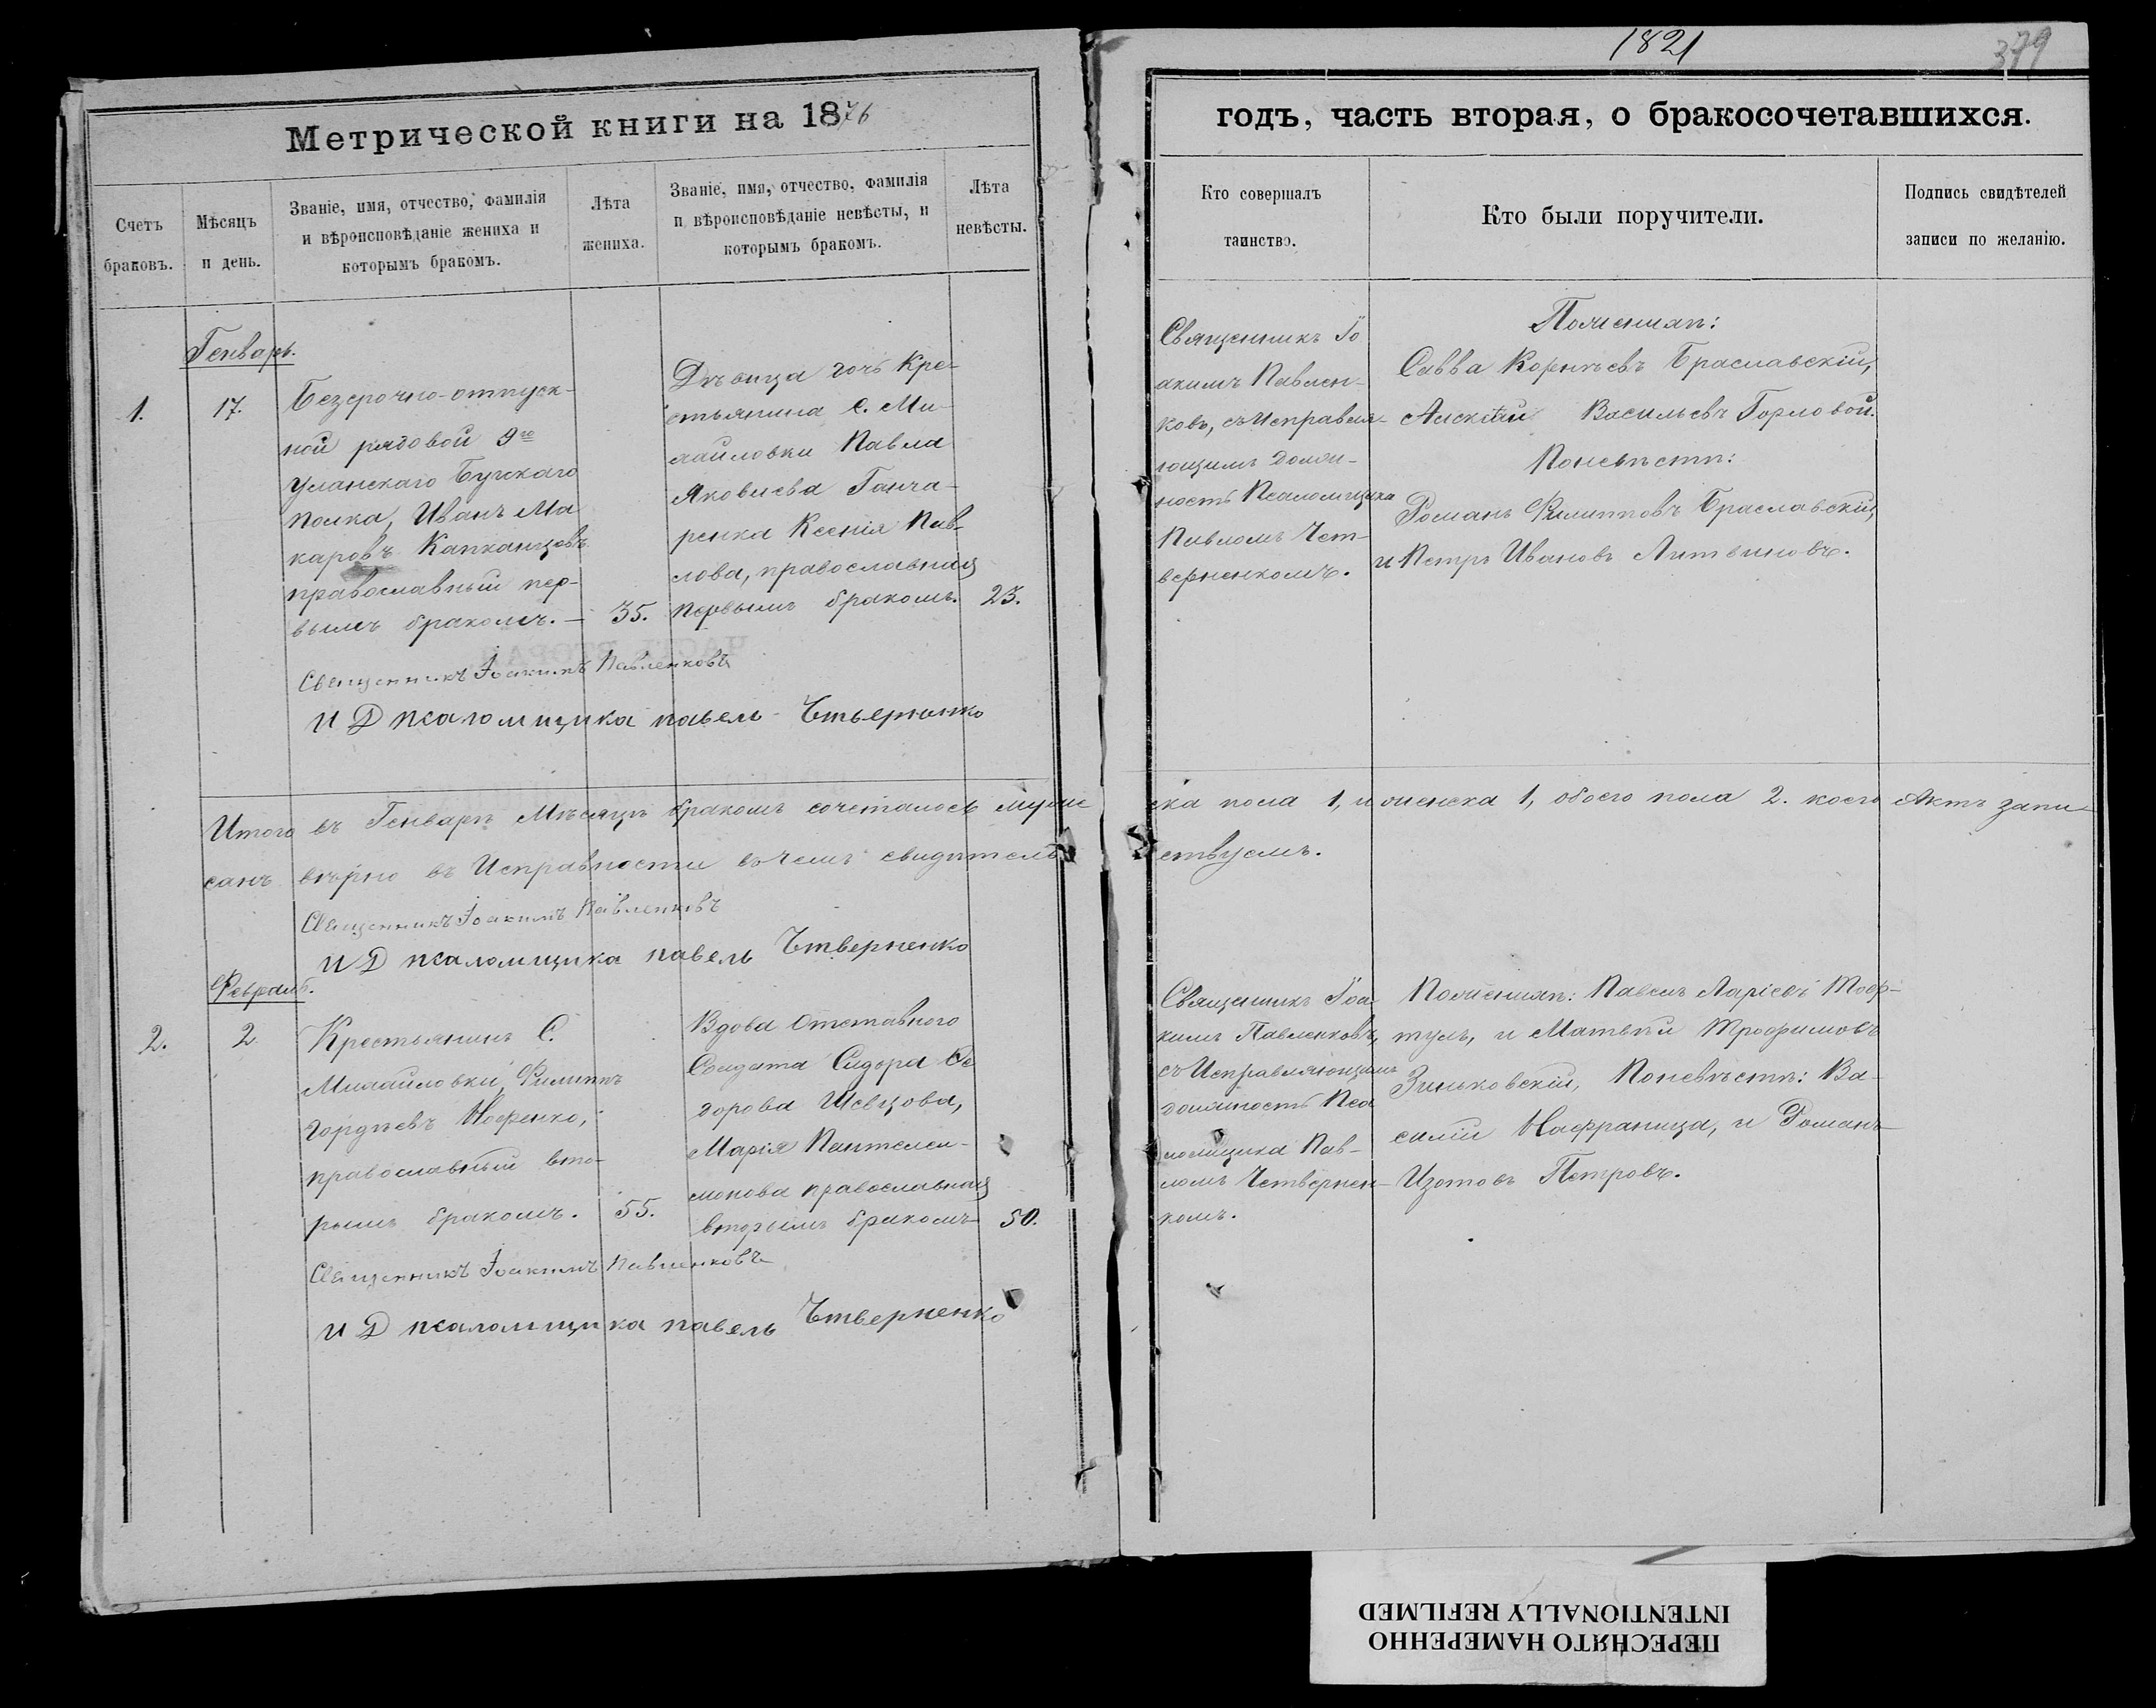 1821
379
Метрической книги на 1876
годъ, часть вторая, о бракосочетавшихся.
Счетъ
браковъ.
Мѣсяцъ
и день.
Званіе, имя, отчество, фамилія
и вѣроисповѣданіе жениха и
которымъ бракомъ.
Лѣта
жениха.
Званіе, имя, отчество, фамилія
и вѣроисповѣданіе невѣсты, и
которымъ бракомъ.
Лѣта
невѣсты.
Кто совершалъ
таинство.
Кто были поручители.
Подпись свидѣтелей
записи по желанію.
Генварь.
1.
17.
Безсрочно-отпуск-
ной рядовой 9го
Уланскаго Бугскаго
полка, Иванъ Ма
каровъ Капканцовъ
православный пер-
вымъ бракомъ. —
35.
Дѣвица дочь Кре-
стьянина С. Ми-
хайловки Павла
Яковлева Ганча-
ренка Ксенія Пав-
лова, православная
первымъ бракомъ.
23.
Священникъ Іо
акимъ Павлен-
ковъ, съ Исправля-
ющимъ должн-
ность Псаломщика
Павломъ Чет-
верненкомъ.
По женихѣ:
Савва Корнѣевъ Браславскій,
Алексѣй Васильевъ Горловой.
По невѣстѣ:
Романъ Филипповъ Браславскій,
и Петръ Ивановъ Литвиновъ.
Священникъ Іоакимъ Павленковъ
И Д псаломщика павелъ Чтверненко
Итого въ Генварѣ Мѣсяцѣ бракомъ сочеталось муже
ска пола 1, и женска 1, обоего пола 2. коего Актъ запи-
санъ вѣрно въ Исправности въ чемъ свидѣтель
ствуемъ.
Священникъ Іоакимъ Павленковъ
И Д псаломщика павелъ Чтверненко
Февраль.
2.
2
Крестьянинъ С.
Михайловки, Филиппъ
Гордѣевъ
православный вто-
рымъ бракомъ.
55.
Вдова Отставного
Солдата Сидора Ѳе
дорова Шевцова,
Марія Пантелеи-
монова православная
вторымъ бракомъ
50.
Священникъ Іоа-
кимъ Павленковъ,
съ Исправляющимъ
должность Пса
ломщика Пав-
ломъ Четвернен-
комъ.
По женихѣ: Павелъ Ларіевъ
и Матвѣй Трофимовъ
Зинковскій, По невѣстѣ: Ва-
силій и Романъ
Изотовъ Петровъ.
Священникъ Іоакимъ Павленковъ
И Д псаломщика павелъ Чтверненко
ПЕРЕСНЯТО НАМЕРЕННО
INTENTIONALLY REFILMED